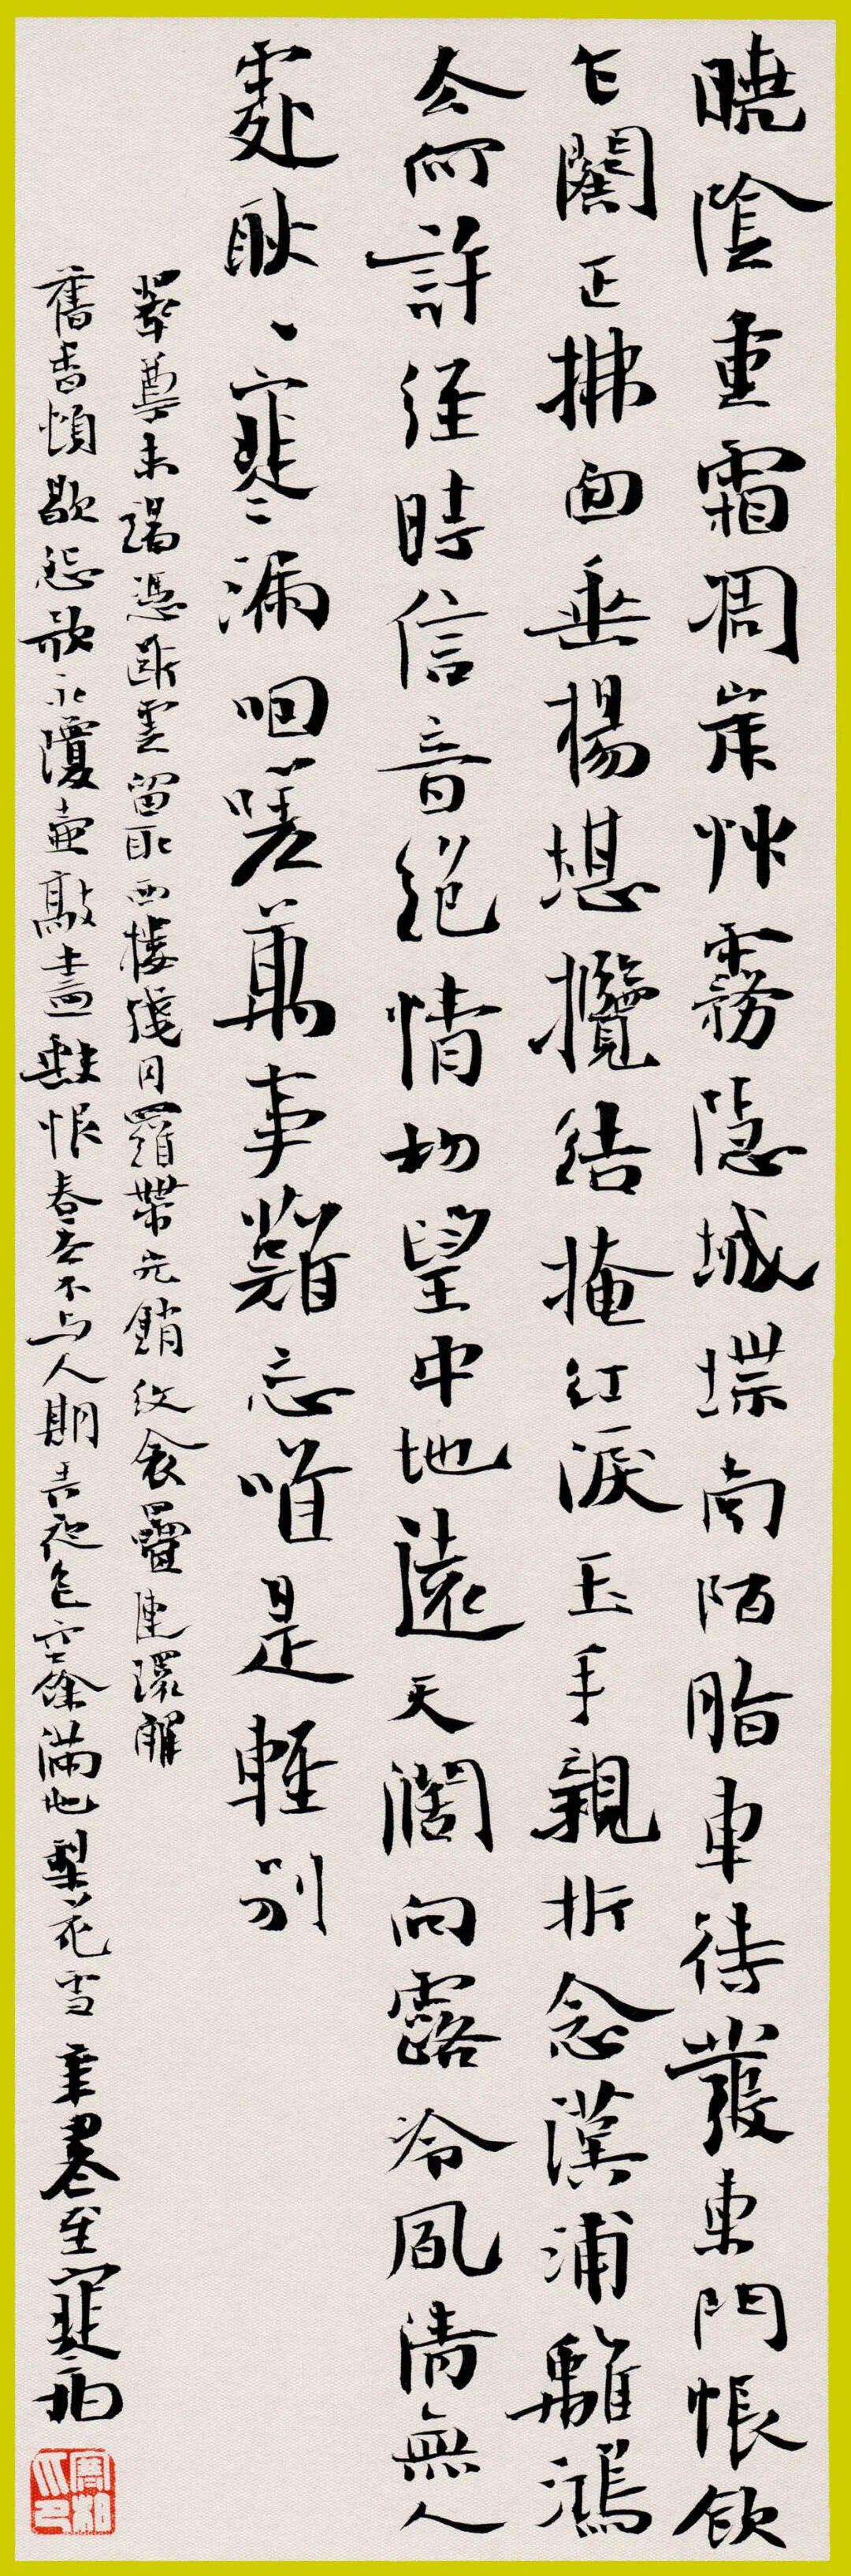 曉陰重霜凋岸艸霧隱城堞南陌脂車待發東門帳飲
乍闋正拂面垂楊堪攬結掩紅淚玉手親折念漢浦離鴻
去何許經時信音絕情切望中地遠天濶向露冷風清無人
處耿、寒漏咽嗟萬事難忘唯是輕別
翠尊未竭憑斷雲留取西樓殘月羅帶光銷紋衾疊連環解
舊香頓歇怨歌永瓊壺敲盡缺恨春去不與人期弄夜色空餘滿地梨花雪